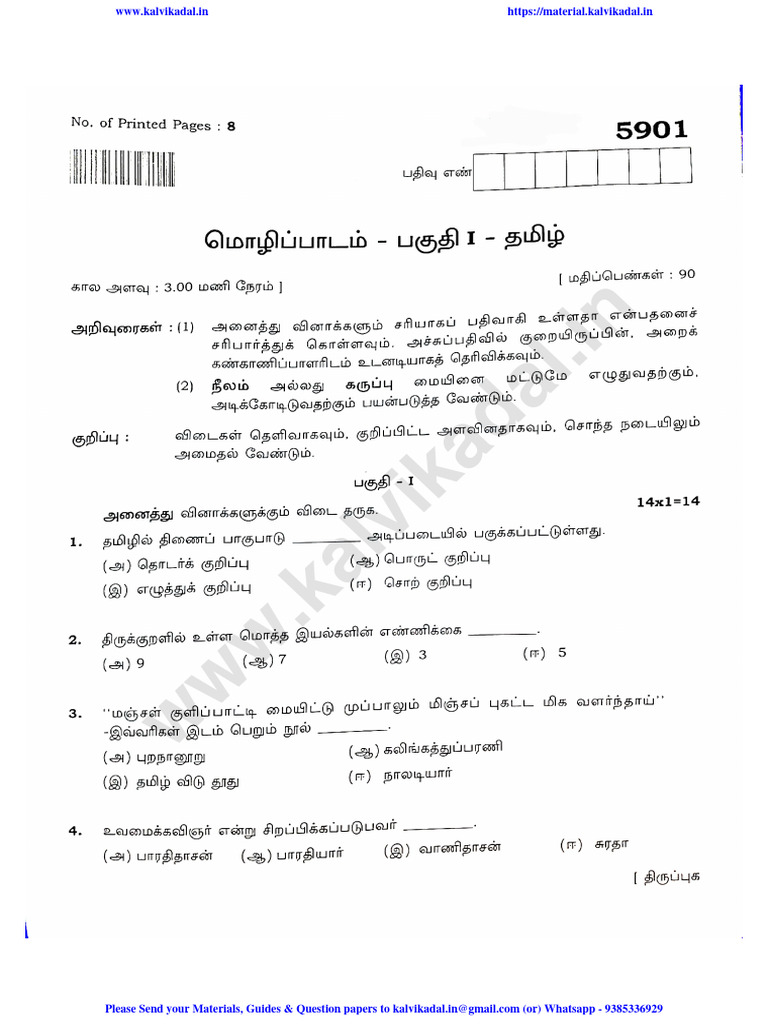 www.kalvikadal.in https://material.kalvikadal.in
No. of Printed Pages : 8
5901
பதிவு எண்
மொழிப்பாடம் – பகுதி I – தமிழ்
கால அளவு : 3.00 மணி நேரம் ] [ மதிப்பெண்கள் : 90
அறிவுரைகள் : (1) அனைத்து வினாக்களும் சரியாகப் பதிவாகி உள்ளதா என்பதனைச்
சரிபார்த்துக் கொள்ளவும். அச்சுப்பதிவில் குறையிருப்பின், அறைக்
கண்காணிப்பாளரிடம் உடனடியாகத் தெரிவிக்கவும்.
(2) நீலம் அல்லது கருப்பு மையினை மட்டுமே எழுதுவதற்கும்,
அடிக்கோடிடுவதற்கும் பயன்படுத்த வேண்டும்.
குறிப்பு : விடைகள் தெளிவாகவும், குறிப்பிட்ட அளவினதாகவும், சொந்த நடையிலும்
அமைதல் வேண்டும்.
பகுதி – I
அனைத்து வினாக்களுக்கும் விடை தருக. 14x1=14
1. தமிழில் திணைப் பாகுபாடு ________ அடிப்படையில் பகுக்கப்பட்டுள்ளது.
(அ) தொடர்க் குறிப்பு (ஆ) பொருட் குறிப்பு
(இ) எழுத்துக் குறிப்பு (ஈ) சொற் குறிப்பு
2. திருக்குறளில் உள்ள மொத்த இயல்களின் எண்ணிக்கை ________.
(அ) 9 (ஆ) 7 (இ) 3 (ஈ) 5
3. ''மஞ்சள் குளிப்பாட்டி மையிட்டு முப்பாலும் மிஞ்சப் புகட்ட மிக வளர்ந்தாய்''
-இவ்வரிகள் இடம் பெறும் நூல் ________.
(அ) புறநானூறு (ஆ) கலிங்கத்துப்பரணி
(இ) தமிழ் விடு தூது (ஈ) நாலடியார்
4. உவமைக்கவிஞர் என்று சிறப்பிக்கப்படுபவர் ________.
(அ) பாரதிதாசன் (ஆ) பாரதியார் (இ) வாணிதாசன் (ஈ) சுரதா
[ திருப்புக
www.kalvikadal.in
Please Send your Materials, Guides & Question papers to kalvikadal.in@gmail.com (or) Whatsapp - 9385336929